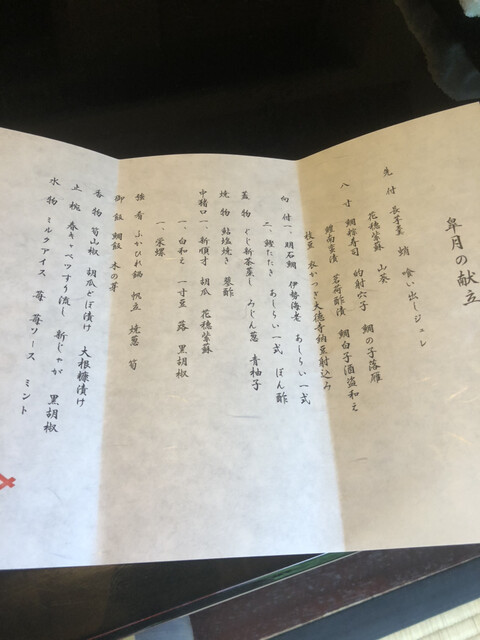 皐月の献立
先付 長芋羹 蛸 喰い出しジュレ
花穂紫蘇 山葵
八寸 鯛粽寿司 的射穴子 鯛の子落雁
鰻南蛮漬 茗荷酢漬 鯛白子酒盗和え
枝豆 衣かつぎ大徳寺納豆射込み
向付 一、明石鯛 伊勢海老 あしらい一式
二、鰹たたき あしらい一式 ぽん酢
蓋物 ぐじ新茶蒸し みじん葱 青柚子
焼物 鮎塩焼き 蓼酢
中猪口 一、新順才 胡瓜 花穂紫蘇
一、白和え 一寸豆 蕗 黒胡椒
一、栄螺
強肴 ふかひれ鍋 帆立 焼葱 筍
御飯 鯛飯 木の芽
香物 筍山椒 胡瓜どぼ漬け 大根糠漬け
止椀 春キャベツすり流し 新じゃが 黒胡椒
水物 ミルクアイス 苺 苺ソース ミント